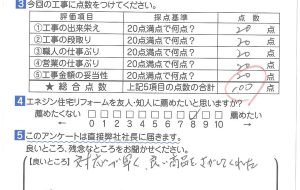 3 今回の工事に点数をつけてください。
評価項目 採点基準 点数
①工事の出来栄え 20点満点で何点? 20 点
②工事の段取り 20点満点で何点? 20 点
③職人の仕事ぶり 20点満点で何点? 20 点
④営業の仕事ぶり 20点満点で何点? 20 点
⑤工事金額の妥当性 20点満点で何点? 20 点
★総合点数 上記5項目の点数の合計 100 点
4 エネジン住宅リフォームを友人・知人に薦めたいと思いますか?
薦めたくない ← □ □ □ □ □ □ □ □ □ □ □ → 薦めたい
0 1 2 3 4 5 6 7 8 9 10
5 このアンケートは直接弊社社長に届きます。
良いところ、残念なところをお聞かせください。
【良いところ】対応が早く、良い商品をさがしてくれた